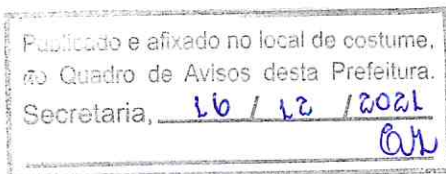 Publicado e afixado no local de costume,
no Quadro de Avisos desta Prefeitura.
Secretaria, 16 / 12 / 2021